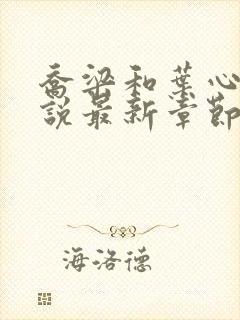 喬梁和葉心
說最新章節
海洛德